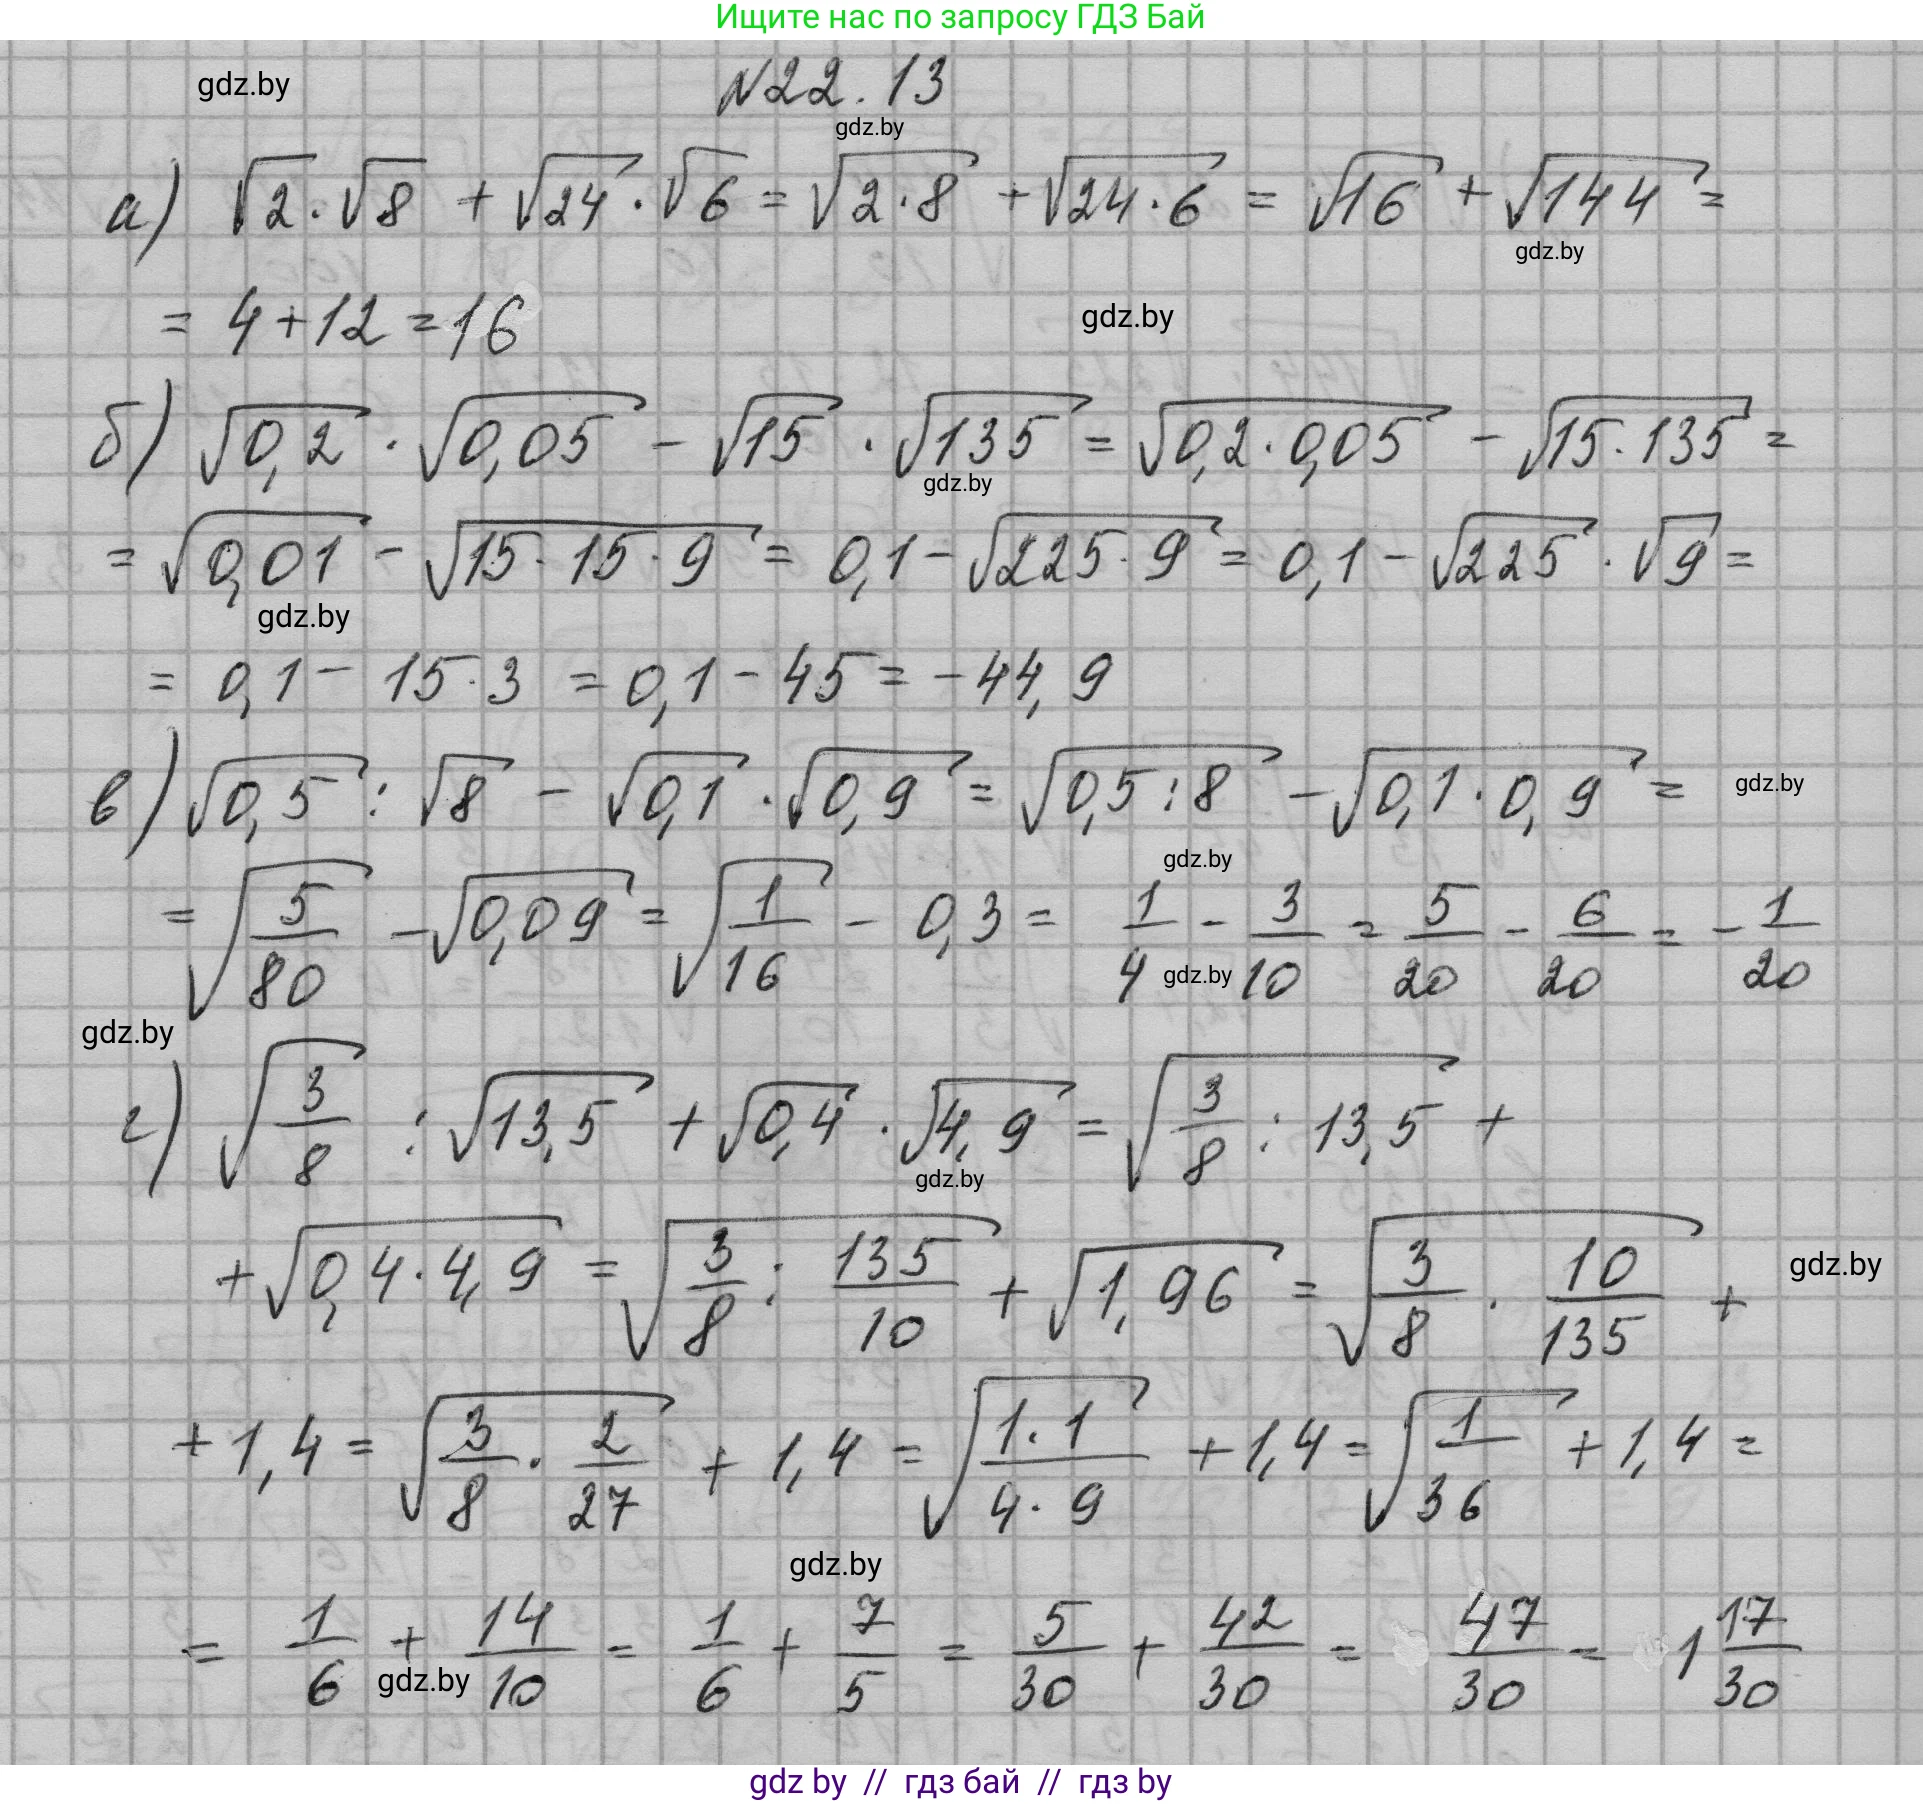 Ищите нас по запросу ГДЗ Бай
gdz.by
№22.13
gdz.by
а) √2·√8 + √24·√6 = √(2·8) + √(24·6) = √16 + √144 =
gdz.by
= 4+12 = 16
gdz.by
б) √0,2 · √0,05 - √15 · √135 = √(0,2·0,05) - √(15·135) =
gdz.by
= √0,01 - √(15·15·9) = 0,1 - √(225·9) = 0,1 - √225 · √9 =
gdz.by
= 0,1 - 15·3 = 0,1 - 45 = -44,9
в) √0,5 : √8 - √0,1 · √0,9 = √(0,5:8) - √(0,1·0,9) =
gdz.by
gdz.by
= √(5/80) - √0,09 = √(1/16) - 0,3 = 1/4 - 3/10 = 5/20 - 6/20 = -1/20
gdz.by
gdz.by
г) √(3/8) : √13,5 + √0,4 · √4,9 = √(3/8 : 13,5) +
gdz.by
+ √(0,4·4,9) = √(3/8 : 135/10) + √1,96 = √(3/8 · 10/135) +
gdz.by
+ 1,4 = √(3/8 · 2/27) + 1,4 = √((1·1)/(4·9)) + 1,4 = √(1/36) + 1,4 =
gdz.by
= 1/6 + 14/10 = 1/6 + 7/5 = 5/30 + 42/30 = 47/30 = 1 17/30
gdz.by
gdz by // гдз бай // гдз by